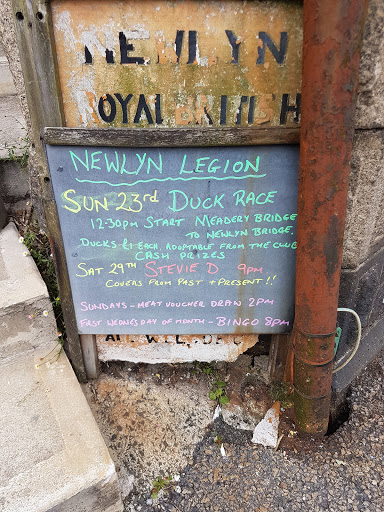 NEWLYN
ROYAL BRITISH
NEWLYN LEGION
SUN 23rd DUCK RACE
12-30pm START MEADERY BRIDGE
TO NEWLYN BRIDGE.
DUCKS £1 EACH, ADOPTABLE FROM THE CLUB
CASH PRIZES
SAT 29TH STEVIE D 9PM
COVERS FROM PAST + PRESENT !!
SUNDAYS - MEAT VOUCHER DRAW 2PM
FIRST WEDNESDAY OF MONTH - BINGO 8PM